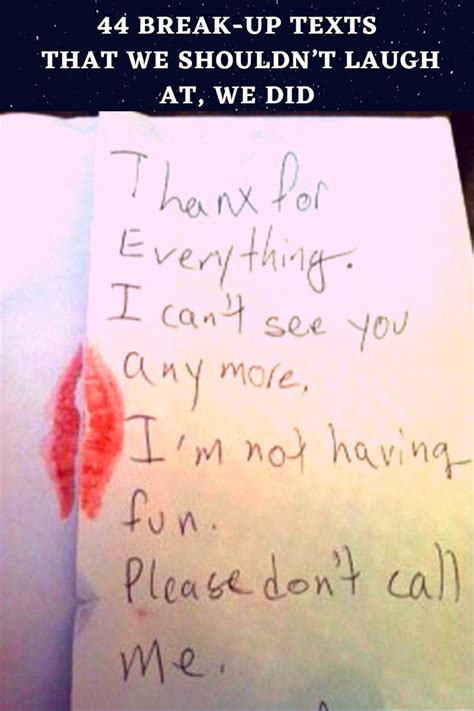 44 BREAK-UP TEXTS
THAT WE SHOULDN’T LAUGH
AT, WE DID
Thanx for
Everything.
I can't see you
any more,
I'm not having
fun.
Please don't call
me.